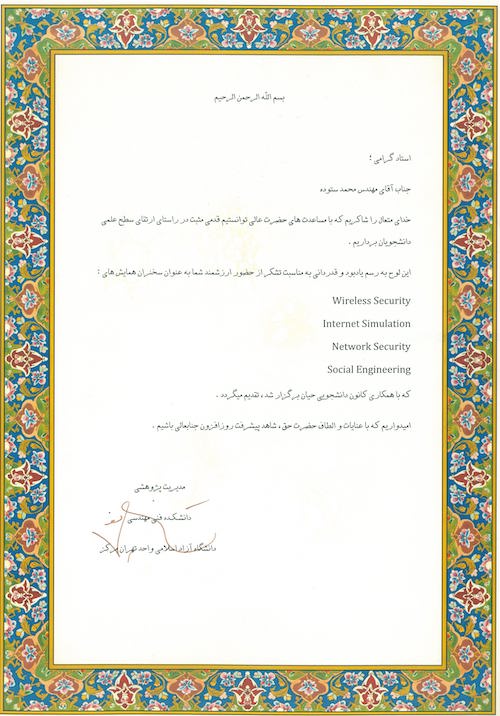 بسم الله الرحمن الرحیم
استاد گرامی ؛
جناب آقای مهندس محمد ستوده
خدای متعال را شاکریم که با مساعدت های حضرت عالی توانستیم قدمی مثبت در راستای ارتقای سطح علمی
دانشجویان برداریم .
این لوح به رسم یادبود و قدردانی به مناسبت تشکر از حضور ارزشمند شما به عنوان سخنران همایش های :
Wireless Security
Internet Simulation
Network Security
Social Engineering
که با همکاری کانون دانشجویی حیان برگزار شد ، تقدیم میگردد .
امیدواریم که با عنایات و الطاف حضرت حق ، شاهد پیشرفت روزافزون جنابعالی باشیم .
مدیریت پژوهشی
دانشکده فنی مهندسی
دانشگاه آزاد اسلامی واحد تهران مرکز